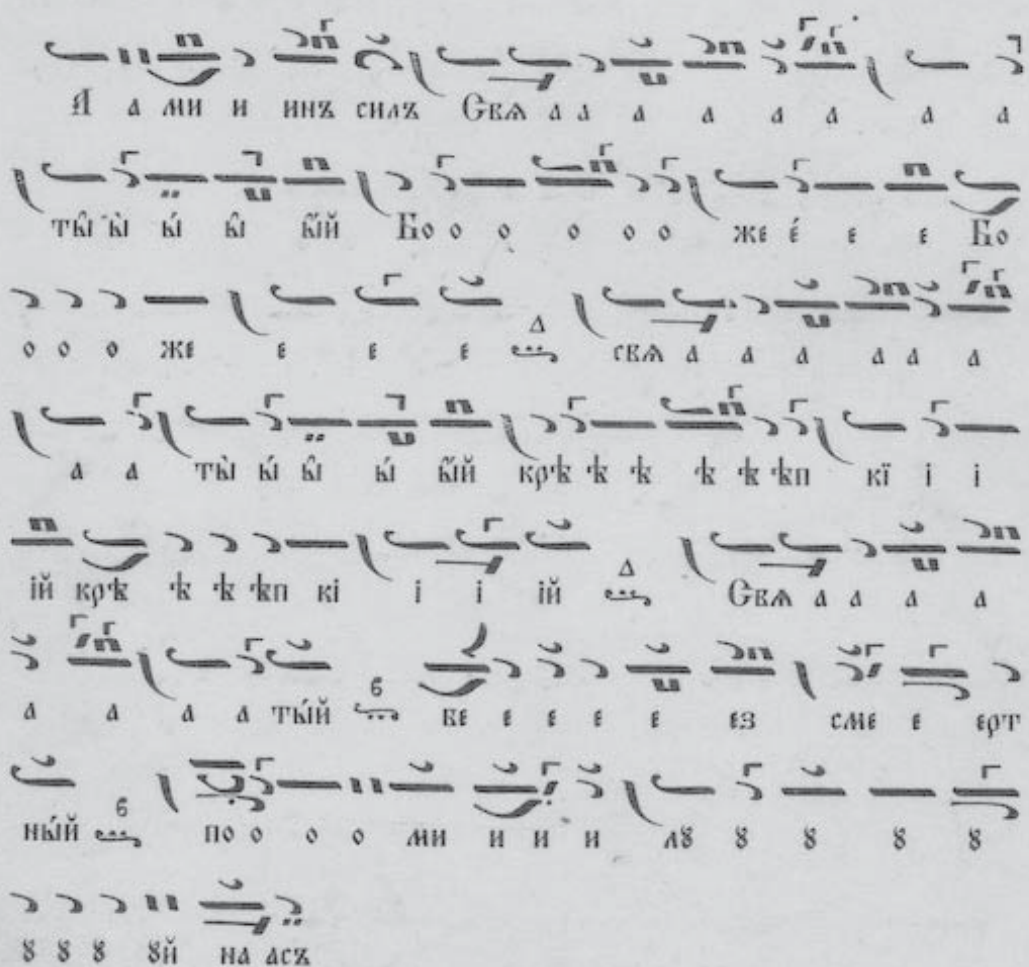 А а ми и инъ силъ Свѧ а а а а а а а а
ты̑ ы̀ ы́ ы̑ ы́й Бо о о о о о же е́ е е Бо
о о о же е е е Δ свѧ а а а а а а
а а ты̀ ы́ ы̑ ы́ ы́й крѣ ѣ ѣ ѣ ѣ ѣп кї і і
ій крѣ ѣ ѣ ѣп кі і і ій Δ Свѧ а а а а
а а а а ты́й ϐ бе е е е е ез сме е ерт
ны́й ϐ по о о о ми и и и лꙋ ꙋ ꙋ ꙋ ꙋ
ꙋ ꙋ ꙋ ꙋй на асъ